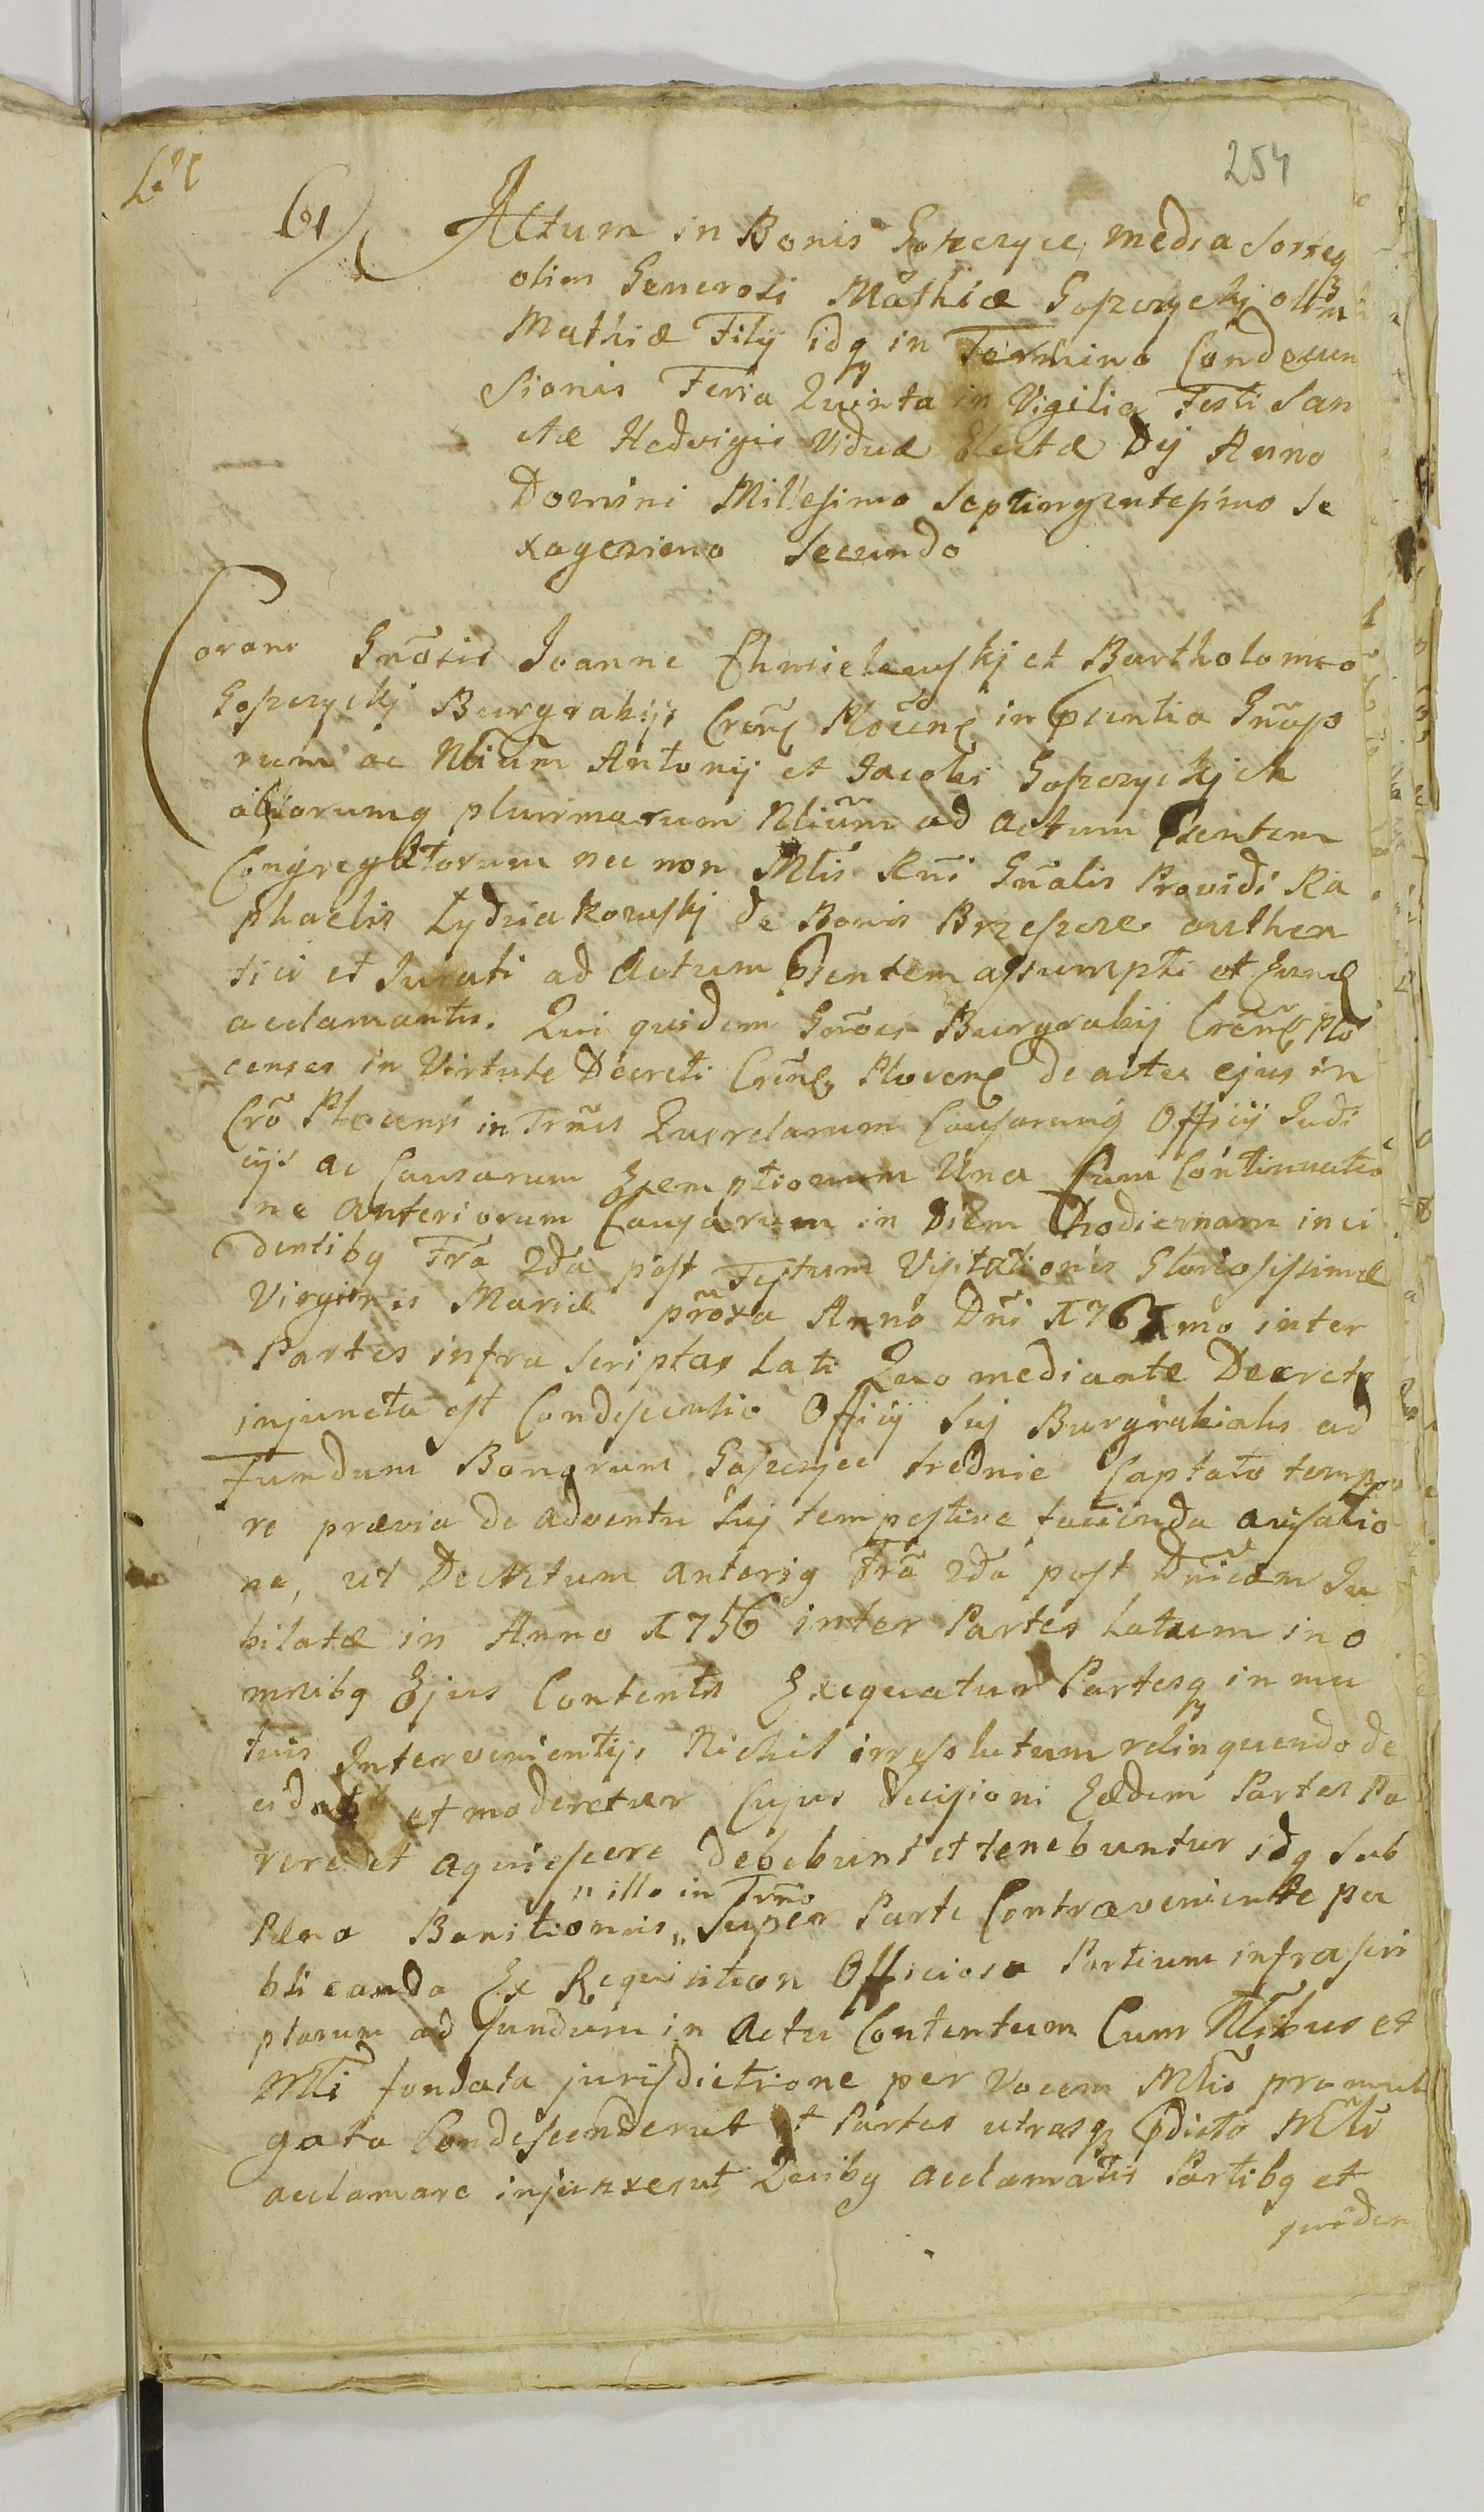 254
61
Actum in Bonis Goszczyce media Sortey
olim Generosi Mathiæ Goszczyckj olim
Mathiæ Filij idq in Termino Condescen
sionis Feria Quinta in Vigilia Festi San
ctæ Hedvigis Viduæ Electæ Dij Anno
Domini Millesimo Septingentesimo Se
xagesimo Secundo
Coram Gnōsis Joanne Chmielewskj et Bartholomeo
Goszczyckj Burgrabijs Cren̄ Plocen̄ in Pcentia Gnāso
rum ac Nliūm Antonij et Jacobi Goszczyckich
aliorumq plurimorum Nliūm ad Actum Psentem
Congregatorum nec non Mlis Rni Gnalis Providi Ra
phaelis Lydziakowskj de Bonis Brzeszcze authen
tici et Jurati ad Actum Psentem assumpti et
acclamantis. Qui quidem Gnosi Burgrabij Cren̄ Plo
censes in Virtute Decreti Cren̄ Plocen̄ de actu ejus in
Cro Plocensi in Trm̄is Querelarum Causarumq Officij Judi
cijs ac Causarum Exemptionum Una Cum Continuatio
ne anteriorum Causarum in Diem Hodiernam inci
dentibq Fra 2da post Festum Visitationis Gloriosissimæ
Virginis Mariæ prōxa Anno Dn̄i 1761mo inter
Partes infra Scriptas Lati Quo mediante Decreto
injuncta est Condescensio Officij Suj Burgrabialis ad
Fundum Bonorum Goszczyce Srednie Captato tempo
re prævia de adventu Suj tempestive facienda avisatio
ne, ut Decretum anteriq Frā 2da post Dn̄icam Ju
bilatæ in Anno 1756 inter Partes Latum in o
mnibq Ejus Contentis Exequatur Partesq in mu
tuis Intervenientijs Nichil irresolutum relinquendo de
cidat et moderetur Cujus decisioni Eædem Partes Pa
rere et aquiescere debebunt et tenebuntur idq Sub
nillo in Trm̄o
Pena Banitionis „ Super Parte Contraveniente pu
blicanda Ex Requisition Officiosa Partium infrascri
ptarum ad fundum in Actu Contentum Cum Nlibus et
Mli fondata jurisdictione per Vocem Mlis promul
gata Condescenderut et Partes utrasq Pdicto Mli
acclamare injunxerut Quibq acclamatis Partibq et
quidem